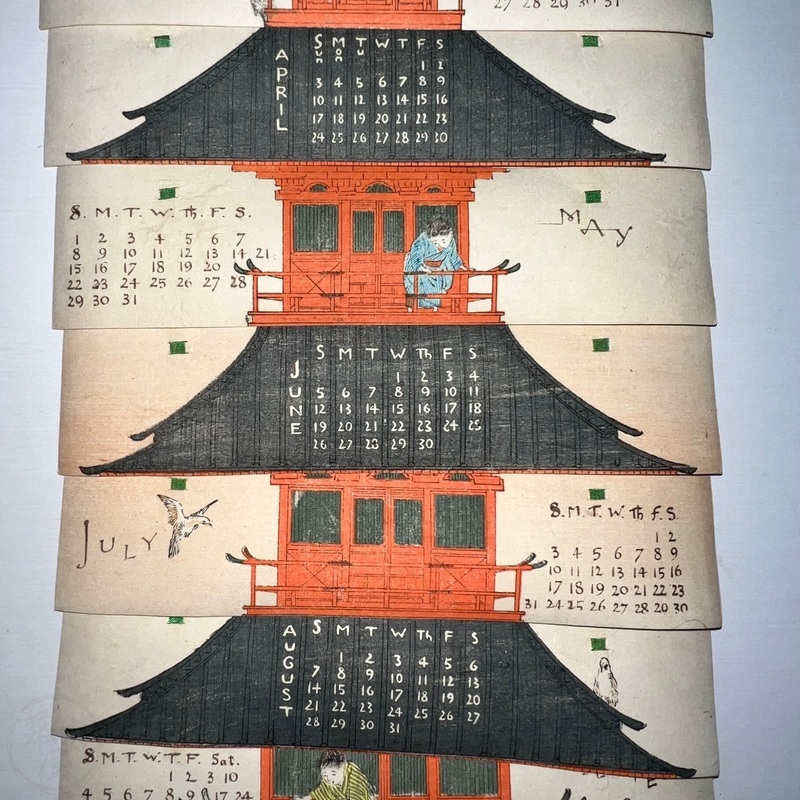 27 28 29 30 31
APRIL
Sun Mon Tu W T F S
1 2
3 4 5 6 7 8 9
10 11 12 13 14 15 16
17 18 19 20 21 22 23
24 25 26 27 28 29 30
S. M. T. W. Th. F. S.
1 2 3 4 5 6 7
8 9 10 11 12 13 14 21
15 16 17 18 19 20
22 23 24 25 26 27 28
29 30 31
MAY
JUNE
S M T W Th F S
1 2 3 4
5 6 7 8 9 10 11
12 13 14 15 16 17 18
19 20 21 22 23 24 25
26 27 28 29 30
JULY
S. M. T. W. Th F. S.
1 2
3 4 5 6 7 8 9
10 11 12 13 14 15 16
17 18 19 20 21 22 23
31 24 25 26 27 28 29 30
AUGUST
S M T W Th F S
1 2 3 4 5 6
7 8 9 10 11 12 13
14 15 16 17 18 19 20
21 22 23 24 25 26 27
28 29 30 31
S. M. T. W. T. F. Sat.
1 2 3 10
4 5 6 7 8 9 17 24